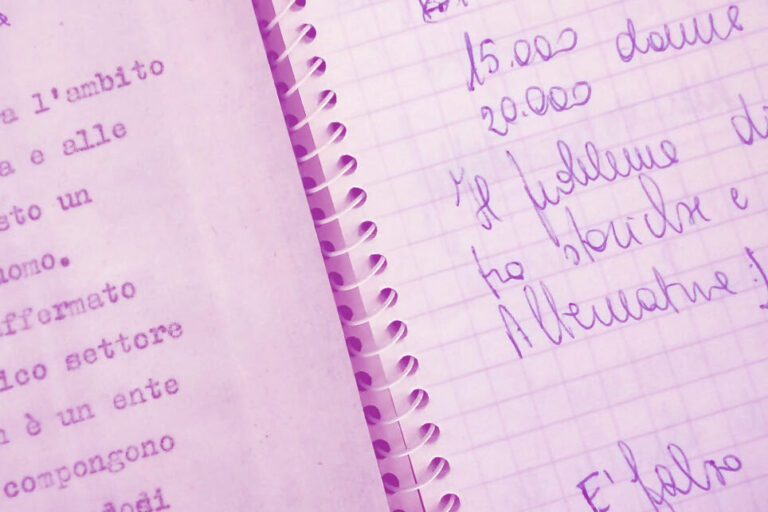 a l'ambito
a e alle
sto un
uomo.
ffermato
ico settore
n è un ente
compongono
dodi
15.000 donne
20.000
"Il problema di
tra storiche e
Alternative:
E' falso